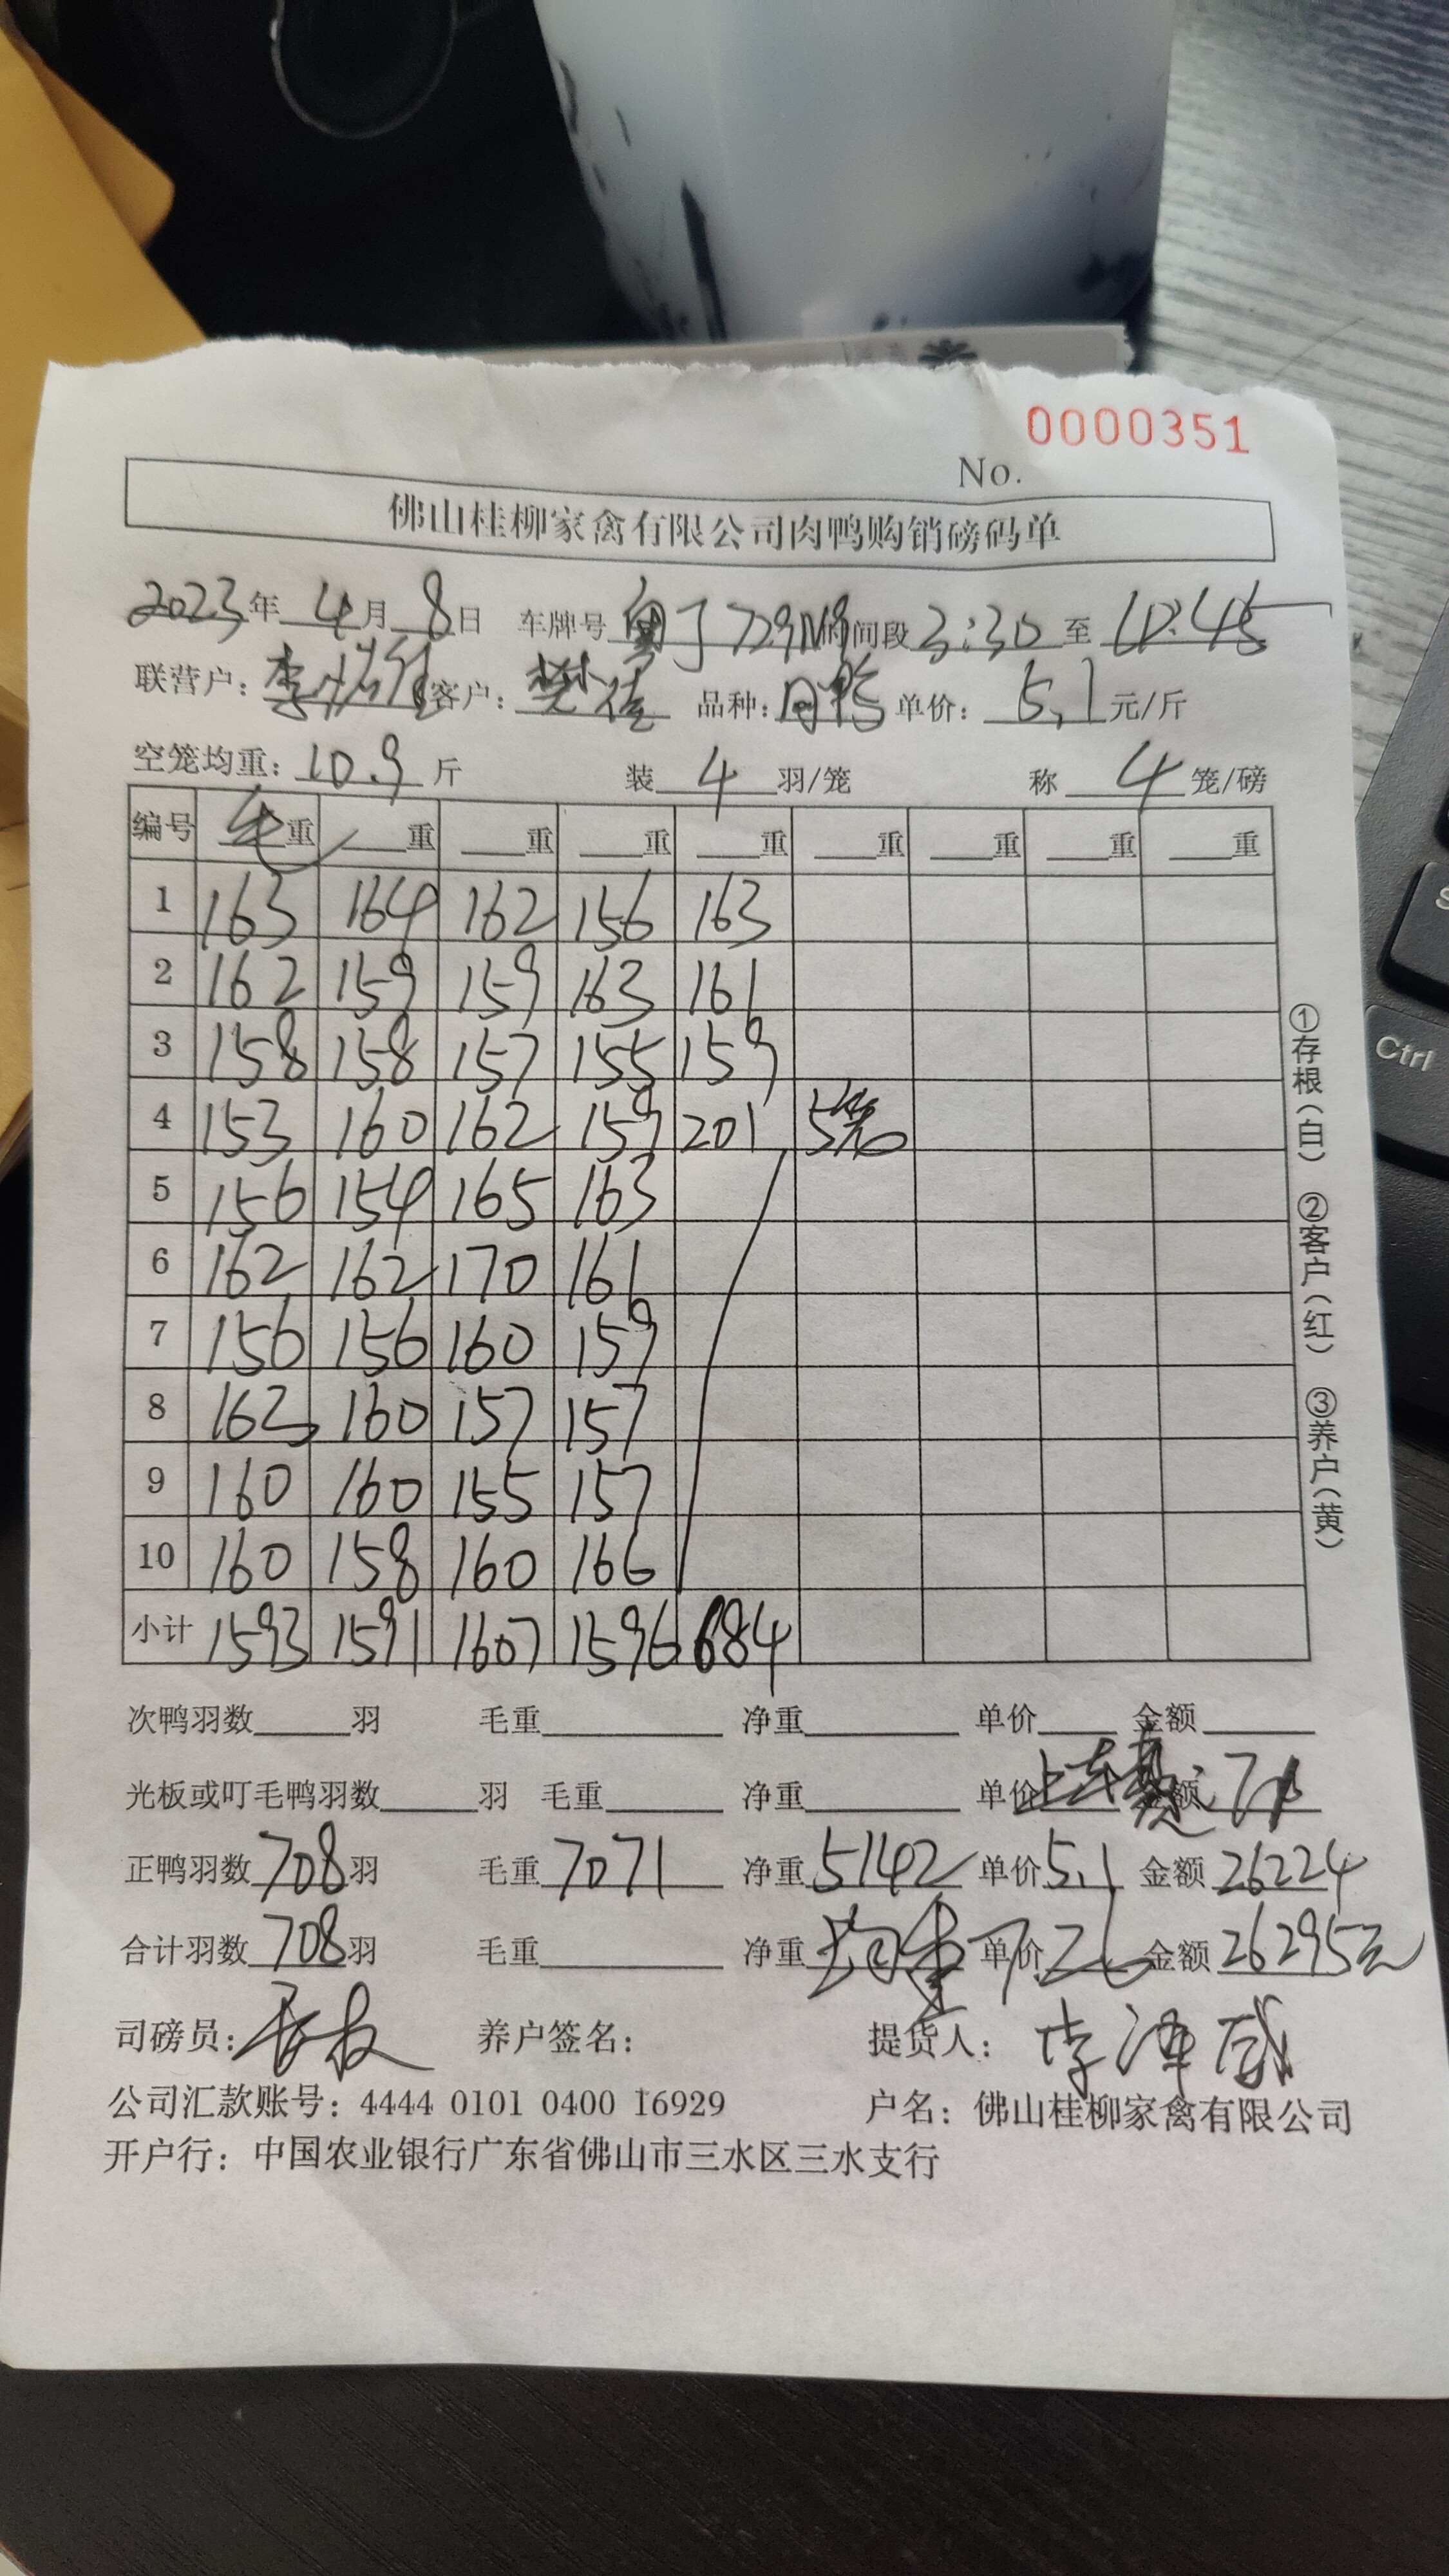 0000351
No.
佛山桂柳家禽有限公司肉鸭购销磅码单
2023年 4月 8日 车牌号 粤J 729M9 时间段 3:30 至 4:45
联营户: 李 客户: 樊佳 品种: 肉鸭 单价: 5.1 元/斤
空笼均重: 10.9 斤 装 4 羽/笼 称 4 笼/磅
编号 毛重 重 重 重 重 重 重 重 重
1 163 164 162 156 163
2 162 159 159 163 161
3 158 158 157 155 159
4 153 160 162 159 201 5笼
5 156 154 165 163
6 162 162 170 161
7 156 156 160 159
8 163 160 157 157
9 160 160 155 157
10 160 158 160 166
小计 1593 1591 1607 1596 684
次鸭羽数 羽 毛重 净重 单价 金额
光板或叮毛鸭羽数 羽 毛重 净重 单价 金额 上车费: 71
正鸭羽数 708 羽 毛重 7071 净重 5142 单价 5.1 金额 26224
合计羽数 708 羽 毛重 净重 均重 单价 7.26 金额 26295元
司磅员: 养户签名: 提货人: 李泽威
公司汇款账号: 4444 0101 0400 16929 户名: 佛山桂柳家禽有限公司
开户行: 中国农业银行广东省佛山市三水区三水支行
①存根(白) ②客户(红) ③养户(黄)
Ctrl
S